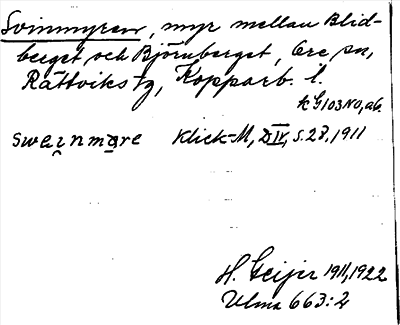 Svinmyren, myr mellan Blid-
berget och Björnberget, Ore sn,
Rättviks tg, Kopparb. l.
k G103NO, ab.
sweinmɑre Klick-M, D IV, s. 28, 1911
H. Geijer 1911, 1922
Ulma 663:2